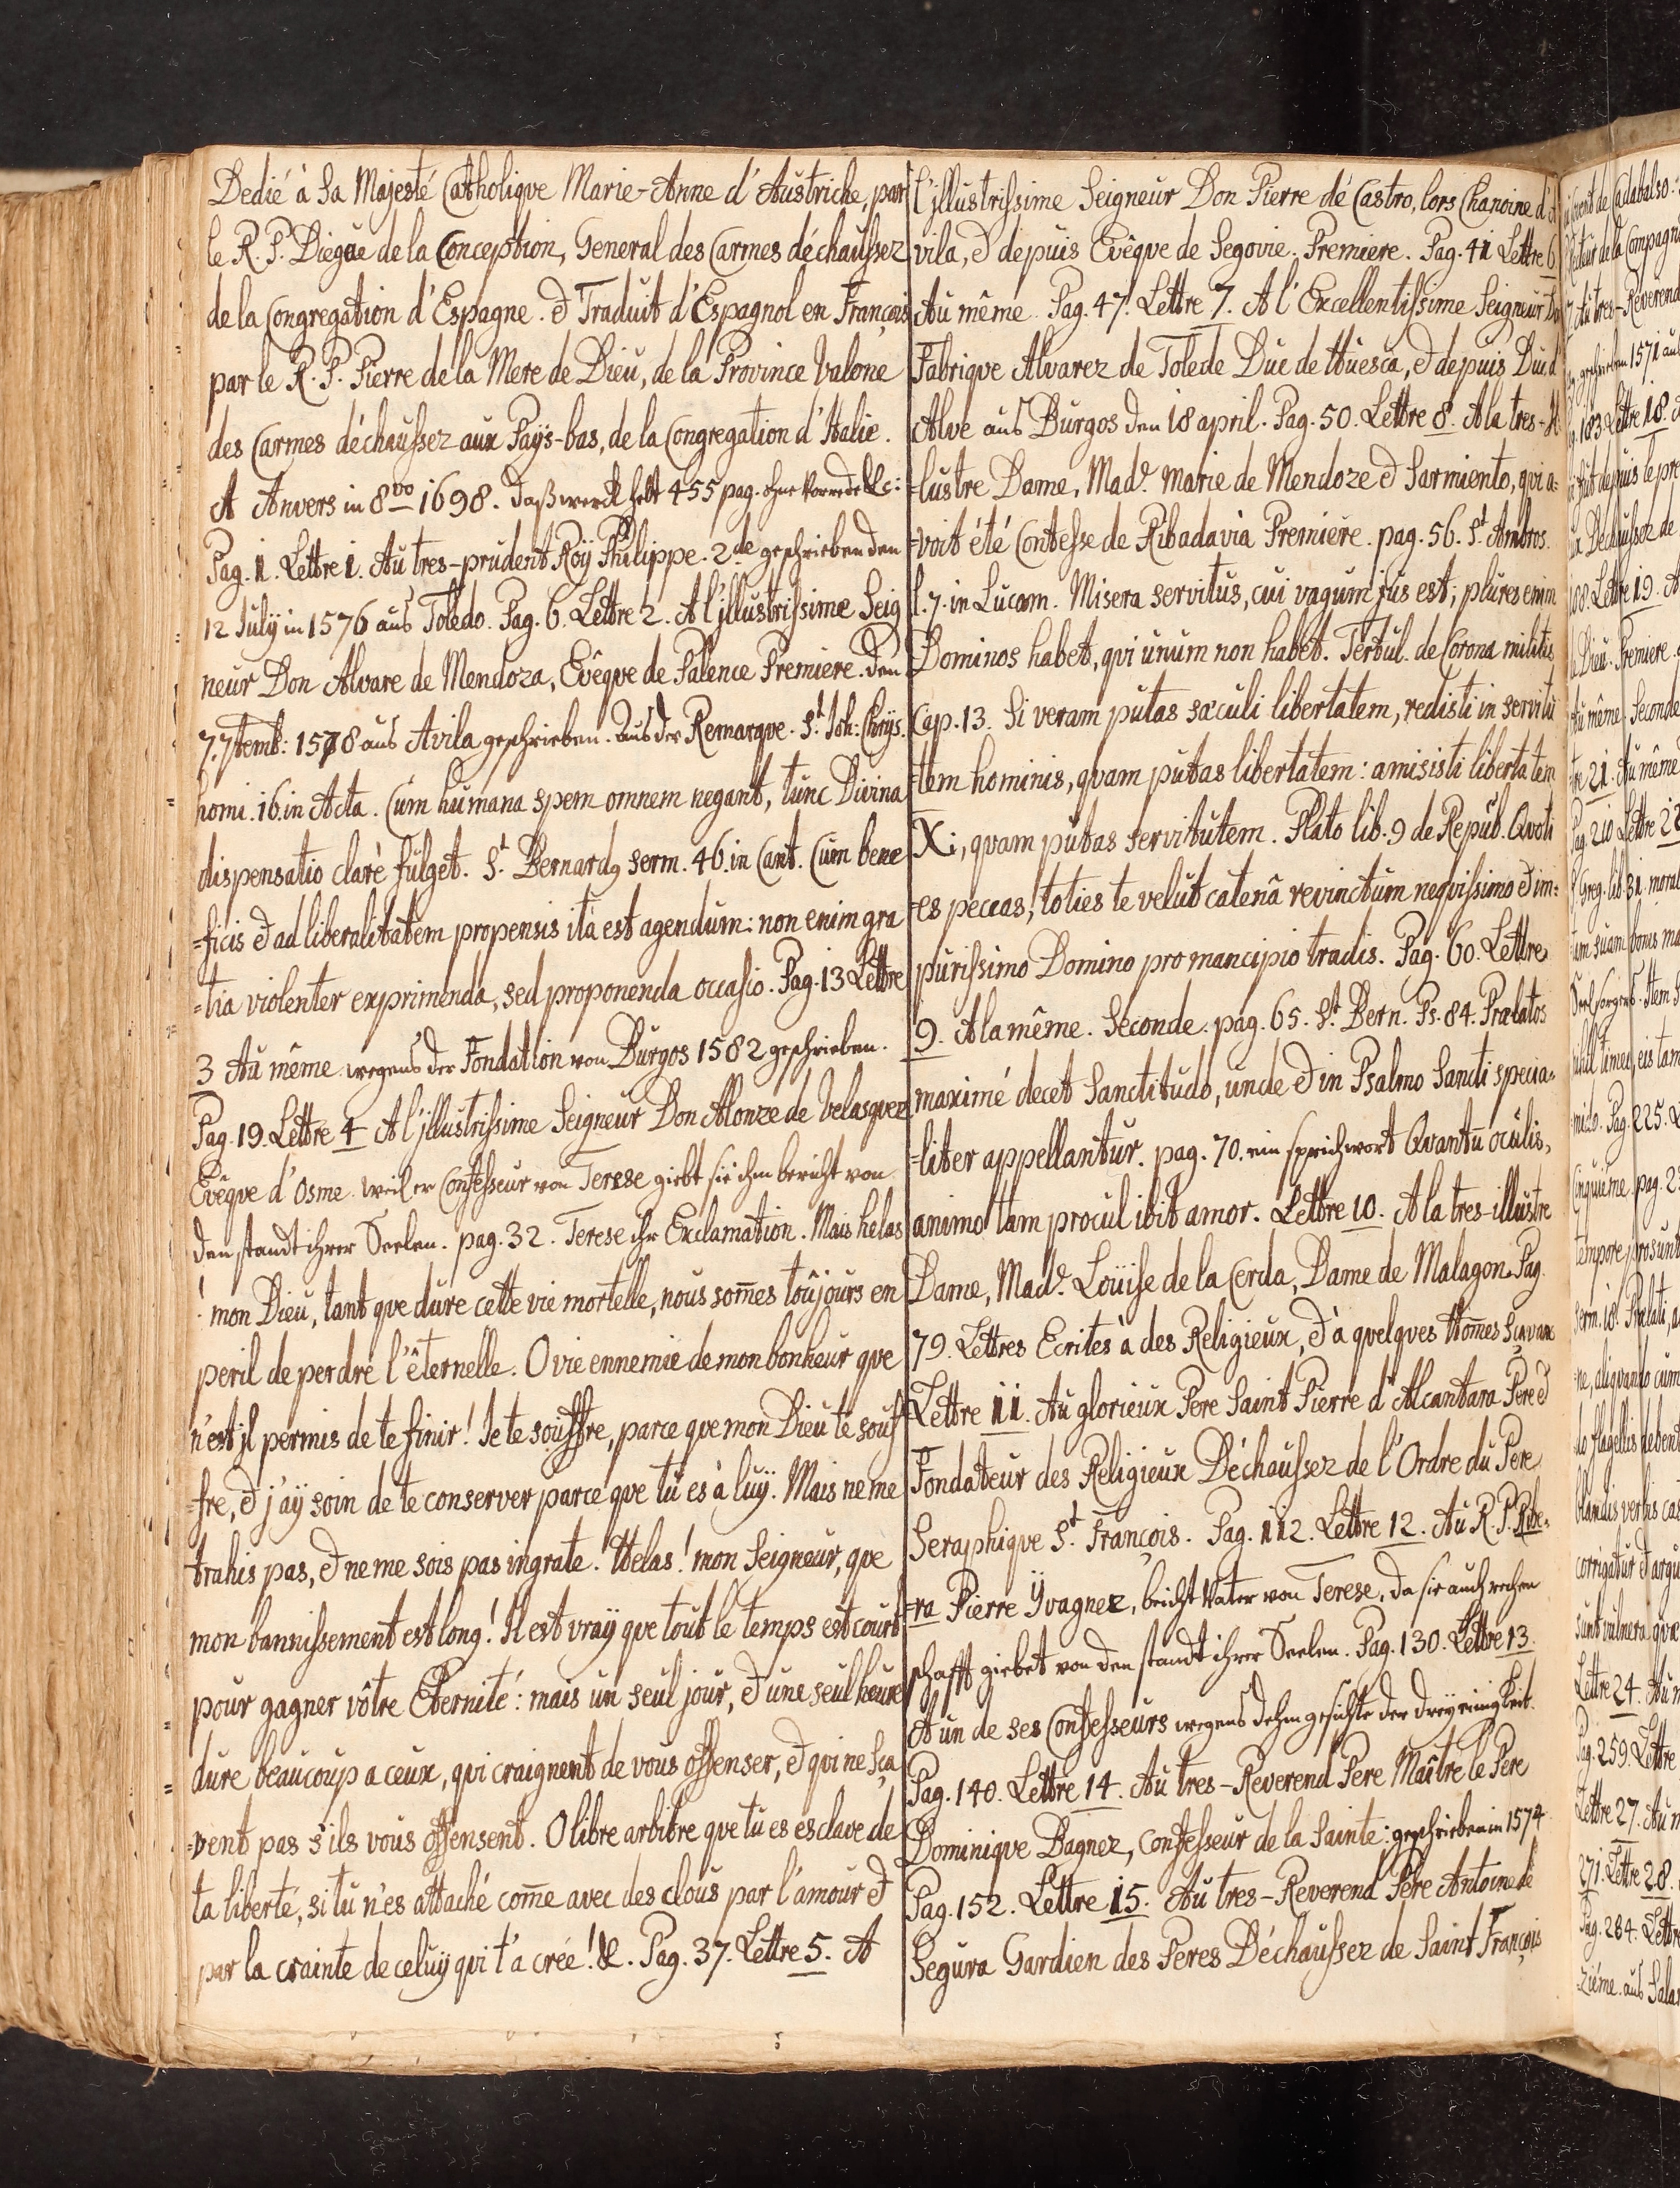 Dedié à Sa Majesté Catholique Marie-Anne d'Austriche, par
le R. P. Diegue de la Conception, General des Carmes déchaussez
de la Congregation d'Espagne. & Traduit d'Espagnol en François
par le R. P. Pierre de la Mere de Dieu, de la Province Valone
des Carmes déchaussez aux Paÿs-bas, de la Congregation d'Italie.
A Anvers in 8vo 1698. daß werck helt 455 pag. ohne Vorrede &c:
Pag. 1. Lettre 1. Au tres-prudent Roÿ Philippe. 2de geschrieben den
12 Julÿ in 1576 aus Toledo. Pag. 6. Lettre 2. A l'jllustrissime Seig
neur Don Alvare de Mendoza, Evêque de Palence Premiere. den
7. 7temb: 1578 aus Avila geschrieben. Aus der Remarque. St. Joh: Chrÿs.
homi. 16. in Acta. Cum humana spem omnem negant, tunc Divina
dispensatio clarè fulget. St. Bernard9 serm. 46. in Cant. Cum bene
=ficis & ad liberalitatem propensis ita est agendum: non enim gra
=tia violenter exprimenda, sed proponenda occasio. Pag. 13 Lettre
3 Au même wegens der Fondation von Burgos 1582 geschrieben.
Pag. 19. Lettre 4 A l'jllustrissime Seigneur Don Alonze de Velasquez
Evêque d'Osme. weil er Confesseur von Terese giebt sie ihm bericht von
den standt ihrer Seelen. pag. 32. Terese ihr Exclamation. Mais helas
! mon Dieu, tant que dure cette vie mortelle, nous som̄es toûjours en
peril de perdre l'êternelle. O vie ennemie de mon bonheur que
n'est jl permis de te finir! Je te souffre, parce que mon Dieu te souf
=fre, & j'aÿ soin de te conserver parce que tu es à luÿ. Mais ne me
trahis pas, & ne me sois pas ingrate. Helas! mon Seigneur, que
mon bannissement est long! Il est vraÿ que tout le temps est court
pour gagner vôtre Eternité: mais un seul jour, & une seul heure
dure beaucoup a ceux, qui craignent de vous offenser, & qui ne sça
=vent pas s'ils vous offensent. O libre arbitre que tu es esclave de
ta liberté, si tu n'es attaché com̄e avec des clous par l'amour &
par la crainte de celuÿ qui t'a crée! &. Pag. 37. Lettre 5. A
l'jllustrissime Seigneur Don Pierre de Castro, lors Chanoine d'A
vila, & depuis Evêque de Segovie. Premiere. Pag. 41 Lettre 6
Au même Pag. 47. Lettre 7. A l'Excellentissime Seigneur Do
Fabrique Alvarez de Tolede Duc de Huesca, & depuis Duc d
Alve aus Burgos den 18 april. Pag. 50. Lettre 8. A la tres-jl
=lustre Dame, Made. Marie de Mendoze & Sarmiento, qui a=
=voit été Contesse de Ribadavia Premiere. pag. 56. St. Ambros.
l. 7. in Lucam. Misera servitus, cui vagum jus est; plures enim
Dominos habet, qui unum non habet. Tertul. de Corona militis
Cap. 13. Si veram putas sæculi libertatem, redisti in servitu
=tem hominis, quam putas libertatem: amisisti libertatem
Xi, quam putas servitutem. Plato lib. 9 de Repub. Quoti
=es peccas, toties te velut catenâ revinctum nequissimo & im=
purissimo Domino pro mancipio tradis. Pag. 60. Lettre
9. A la même. Seconde. pag. 65. St. Bern. Ps. 84. Prælatos
maximé decet Sanctitudo, unde & in Psalmo Sancti specia=
=liter appellantur. pag. 70. ein sprichwort Quantu oculis,
animo tam procul ibit amor. Lettre 10. A la tres-illustre
Dame, Made. Loüise de la Cerda, Dame de Malagon. Pag.
79. Lettres Ecrites à des Religieux, & à quelques Hom̄es Sçavan
Lettre 11. Au glorieux Pere Saint Pierre d'Alcantara Pere &
Fondateur des Religieux Déchaussez de l'Ordre du Pere
Seraphique St. François. Pag. 112. Lettre 12. Au R. P. Ribe=
=ra Pierre Ÿvagnez, beicht Vater von Terese, da sie auch rechen
schafft giebet von den standt ihrer Seelen. Pag. 130. Lettre 13.
A un de ses Confesseurs wegens dehm gesichte der dreÿeinigkeit.
Pag. 140. Lettre 14. Au tres-Reverend Pere Maître le Pere
Dominique Bagnez, Confesseur de la Sainte: geschrieben in 1574
Pag. 152. Lettre 15. Au tres-Reverend Pere Antoine de
Segura Gardien des Peres Déchaussez de Saint François